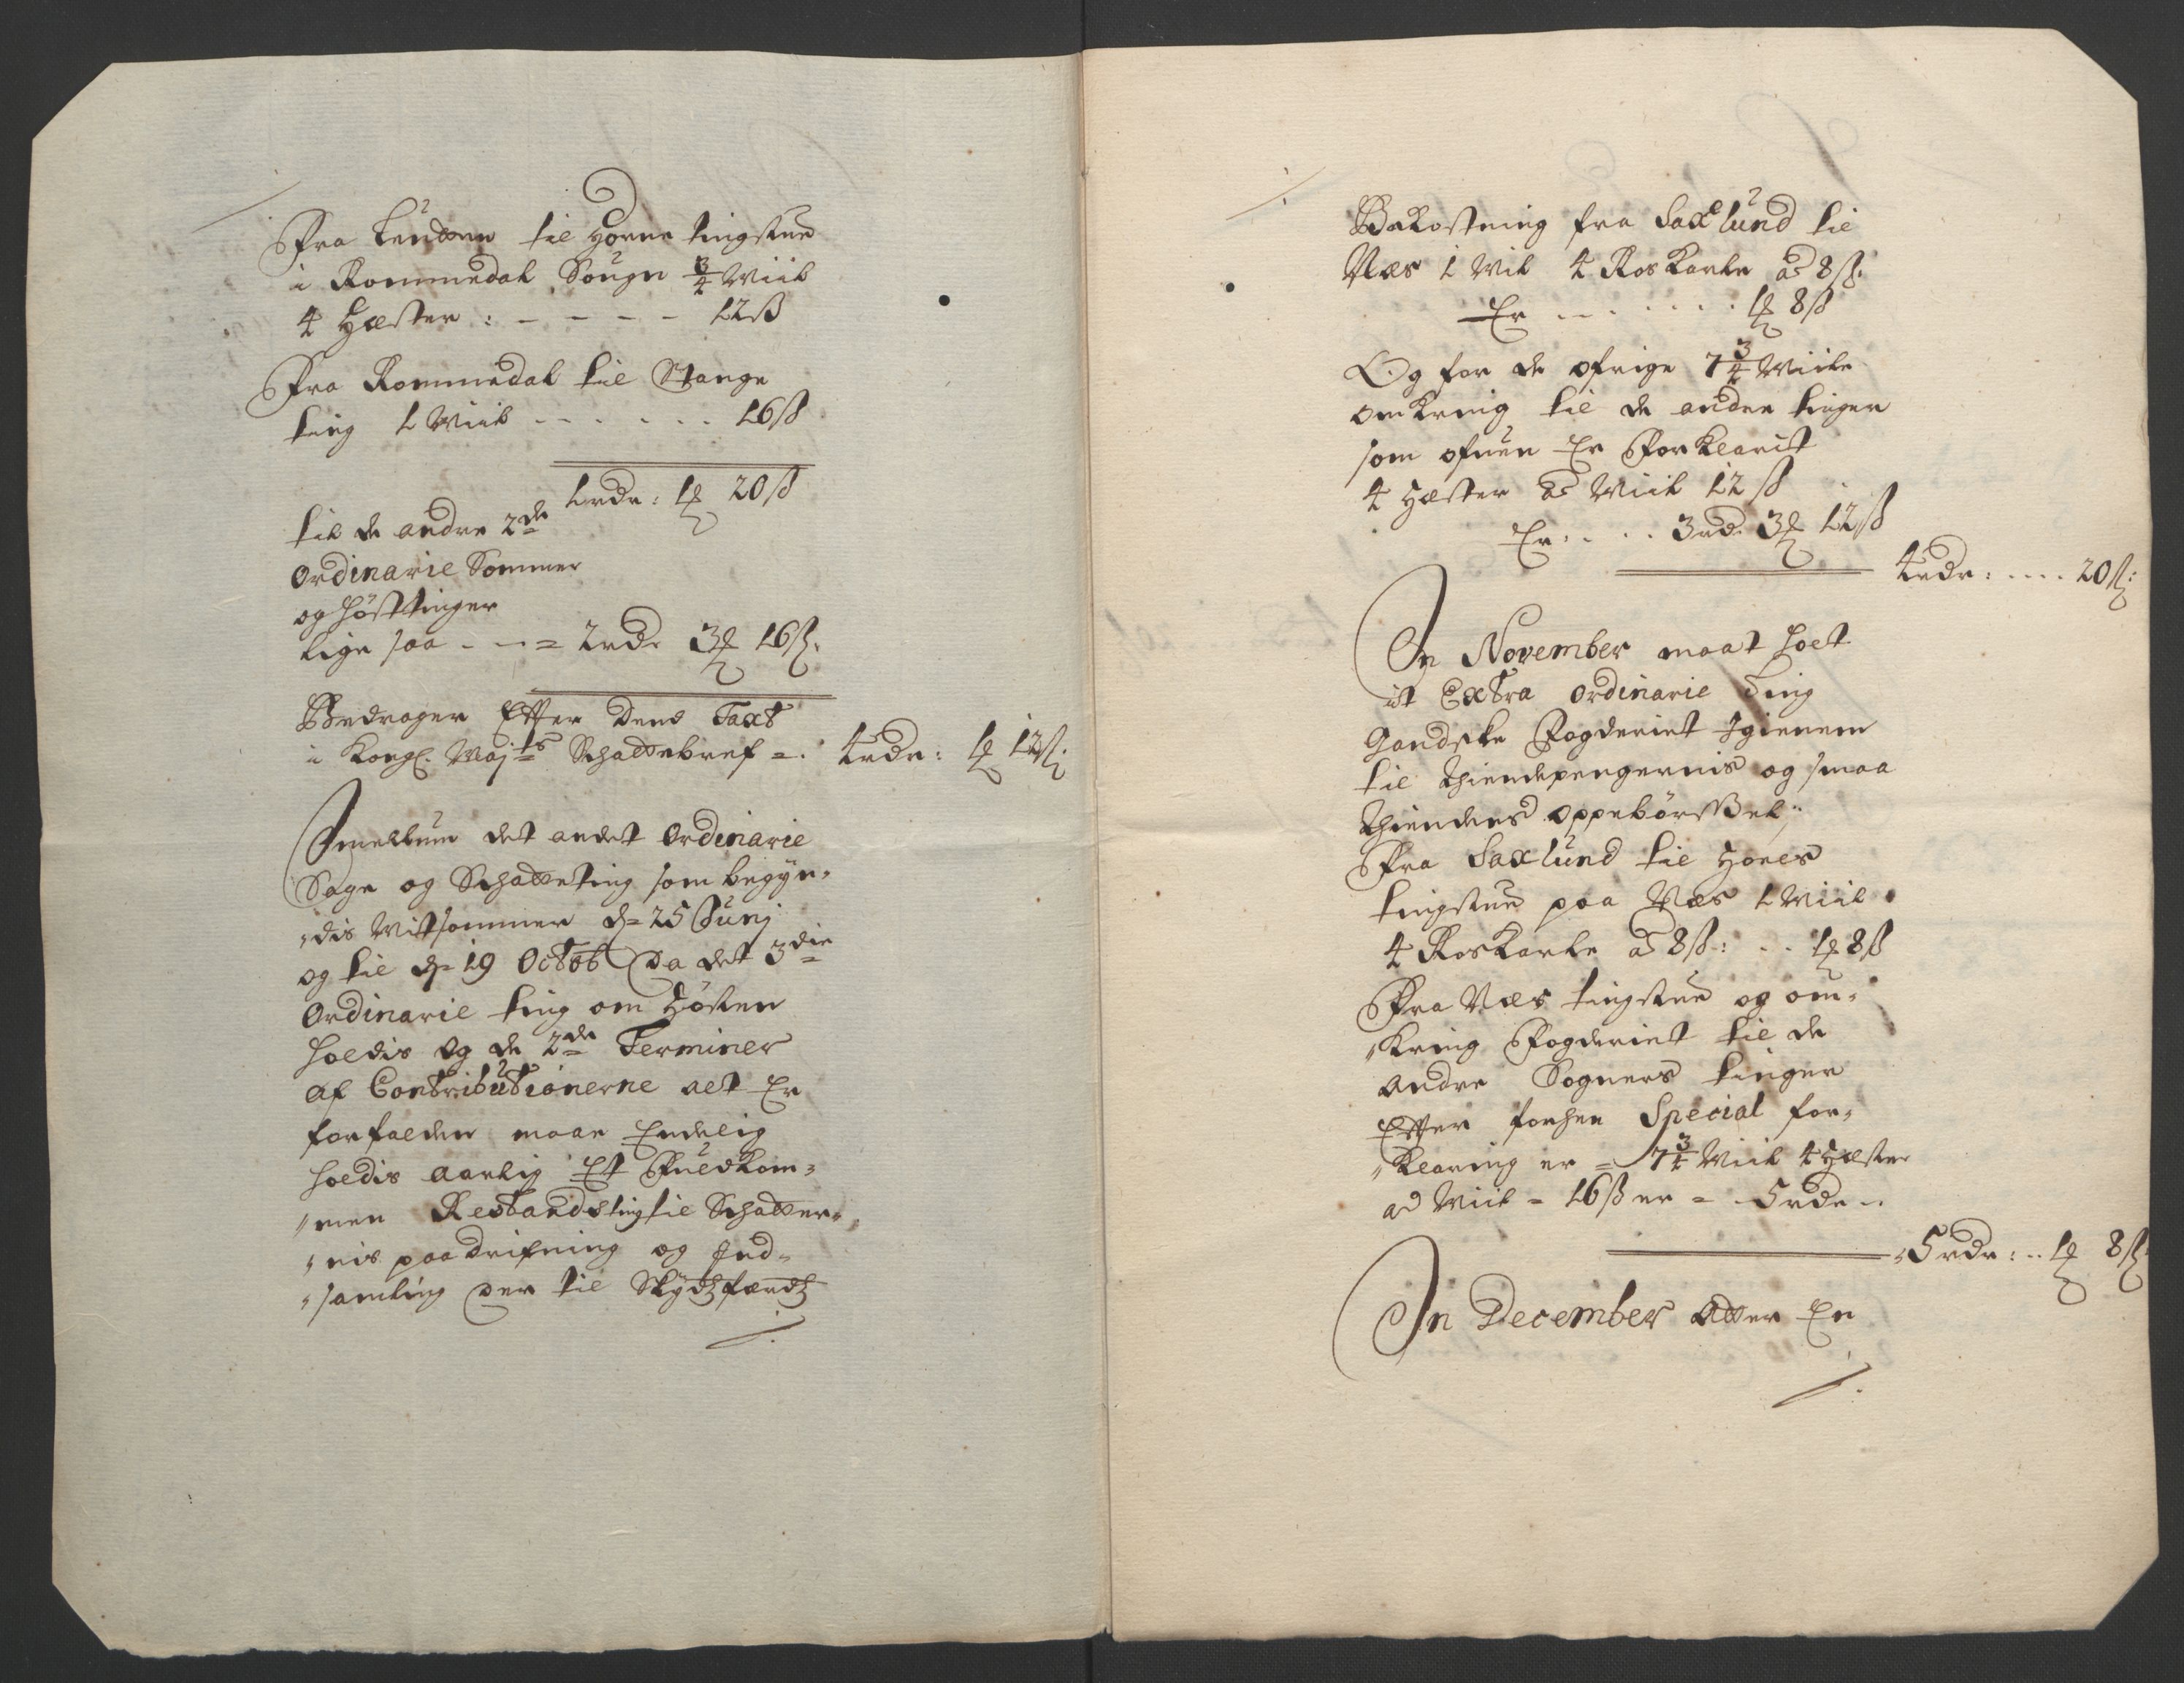 Fra Lunden til Horne tingstue
i Rommedal Sougn 3/4 Miil
4 Hæster : - - - - 12 ß
Fra Rommedal til Stange
ting 1 Miil - - - - - 16 ß
1 rdr: 1 ₰ 20 ß
til de andre 2de
Ordinarie Sommer
og Høsttinger
lige saa - - = 2 rdr 3 ₰ 16 ß.
Bedrager Efter Dend Taxt
i Kongl. Majts Schattebref =. 4 rdr: 1 ₰ 12 ß.
Imellum det andet Ordinarie
Sage og Schatteting som begÿn-
"dis Mitsommer d= 25 Junj
og til d= 19 Octob Da det 3die
Ordinarie ting om Høsten
holdis Og de 2de Terminer
af Contributionerne alt Er
forfalden maae Endelig
holdis aarlig Et Fuldkom-
"men Restandsting til Schatter-
"nis paadrifning og Ind-
"samling Der til
Bekostning fra Saxlund til
Næs 1 Mil 4 Roskarle ad 8 ß.
Er - - . . . . . 1 ₰ 8 ß
Og for de øfrige 7 3/4 Miile
omkring til de anden tinger
som ofuen Er Forklarit
4 Hæster ad Miil 12 ß
Er . . . . 3 rd. 3 ₰ 12 ß
4 rdr: . . . . 20 ß:
In November maat holt
it Extra Ordinarie Ting
Gandske Fogderiet Igienem
til Thiendepengernis og smaa
Thienders Oppebørßel:
Fra Saxlund til Hoels
tingstue paa Næs 1 Miil
4 Roskarle ad 8 ß: . . 1 ₰ 8 ß
Fra Næs tingstue og om-
"kring Fogderiet til de
Andre Sogners tinger
Efter forhen Special for-
"klaring er = 7 3/4 Miil 4 Hæster
ad Miil = 16 ß er = 5 rdr -
5 rdr: . . 1 ₰ 8 ß
In December Atter En